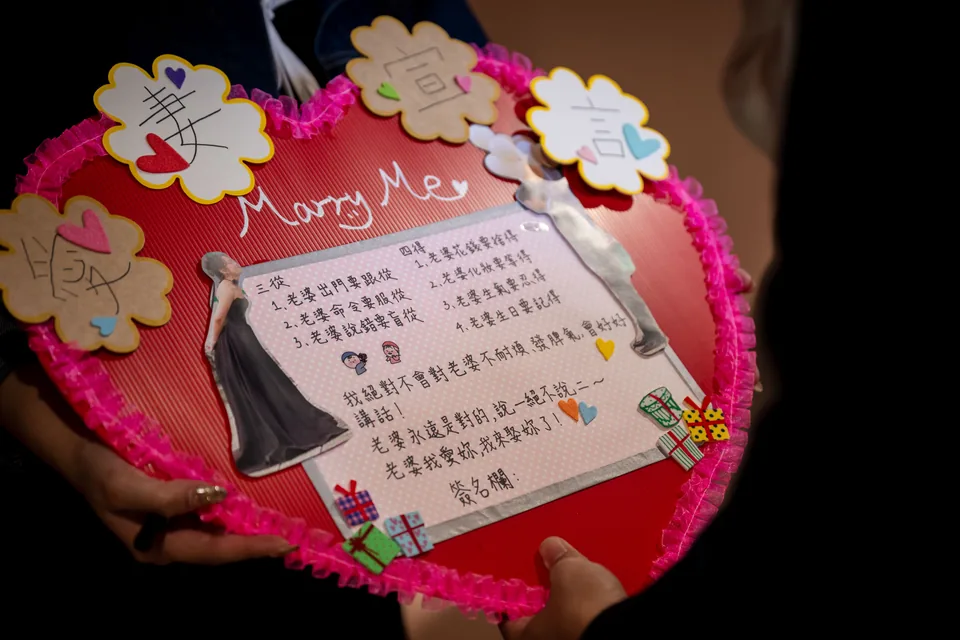 娶妻宣言
Marry Me
三從
1. 老婆出門要跟從
2. 老婆命令要服從
3. 老婆說錯要盲從
四得
1. 老婆花錢要捨得
2. 老婆化妝要等得
3. 老婆生氣要忍得
4. 老婆生日要記得
我絕對不會對老婆不耐煩、發脾氣,會好好
講話!
老婆永遠是對的,說一絕不說二~
老婆我愛妳,我來娶妳了!
簽名欄: